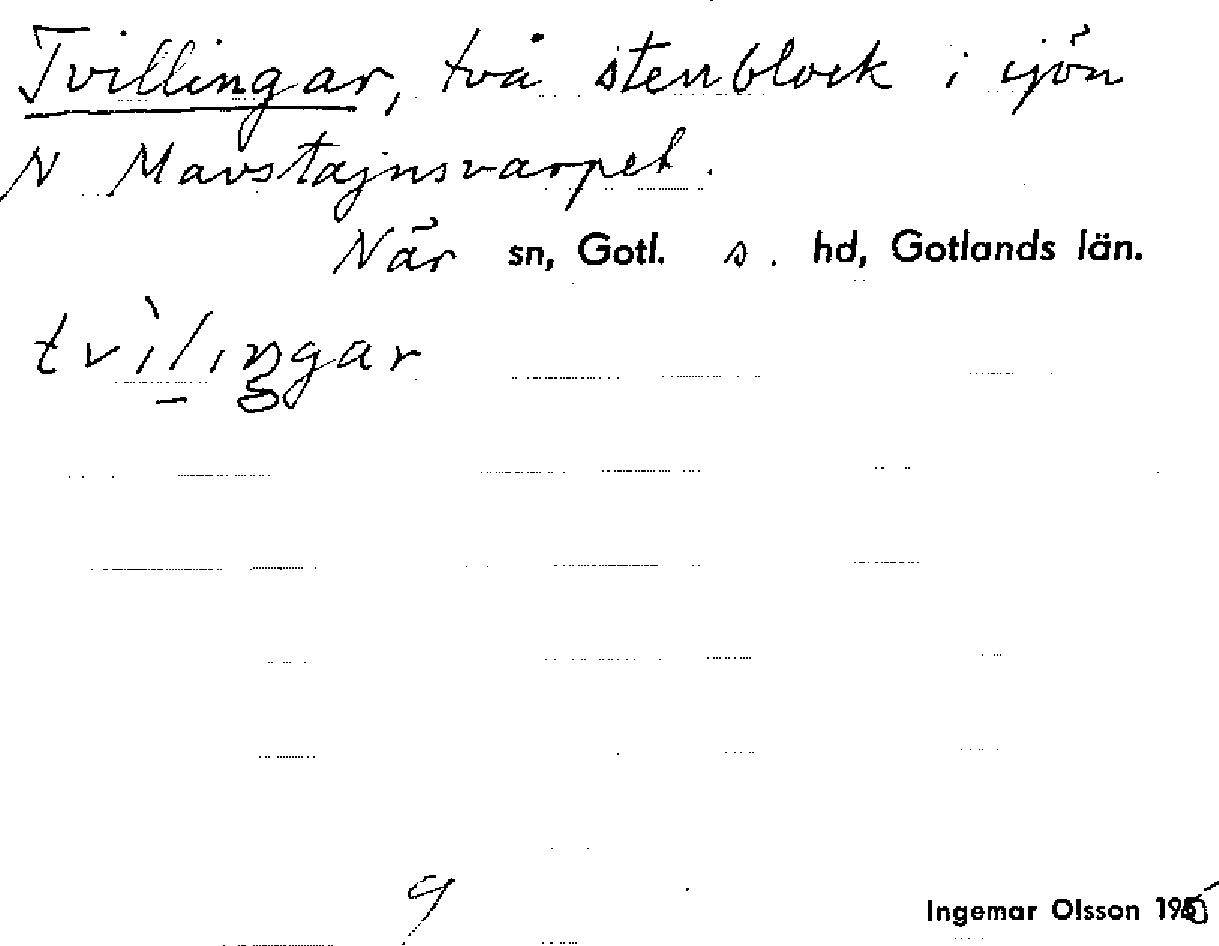 Tvillingar, två stenblock i sjön
N Mavstajnsvarpet.
När sn, Gotl. s. hd, Gotlands län.
tvìlıŋgar
9
Ingemar Olsson